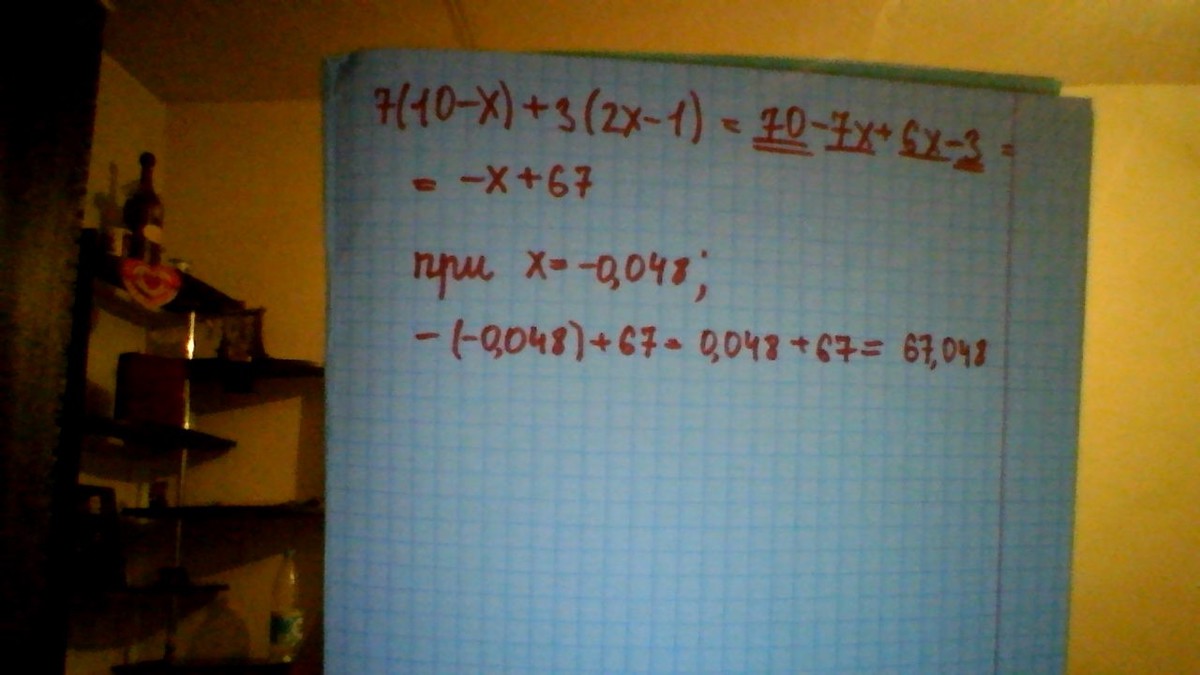 7(10-x)+3(2x-1) = 70-7x+6x-3 =
= -x+67
при x=-0,048;
-(-0,048)+67= 0,048+67= 67,048